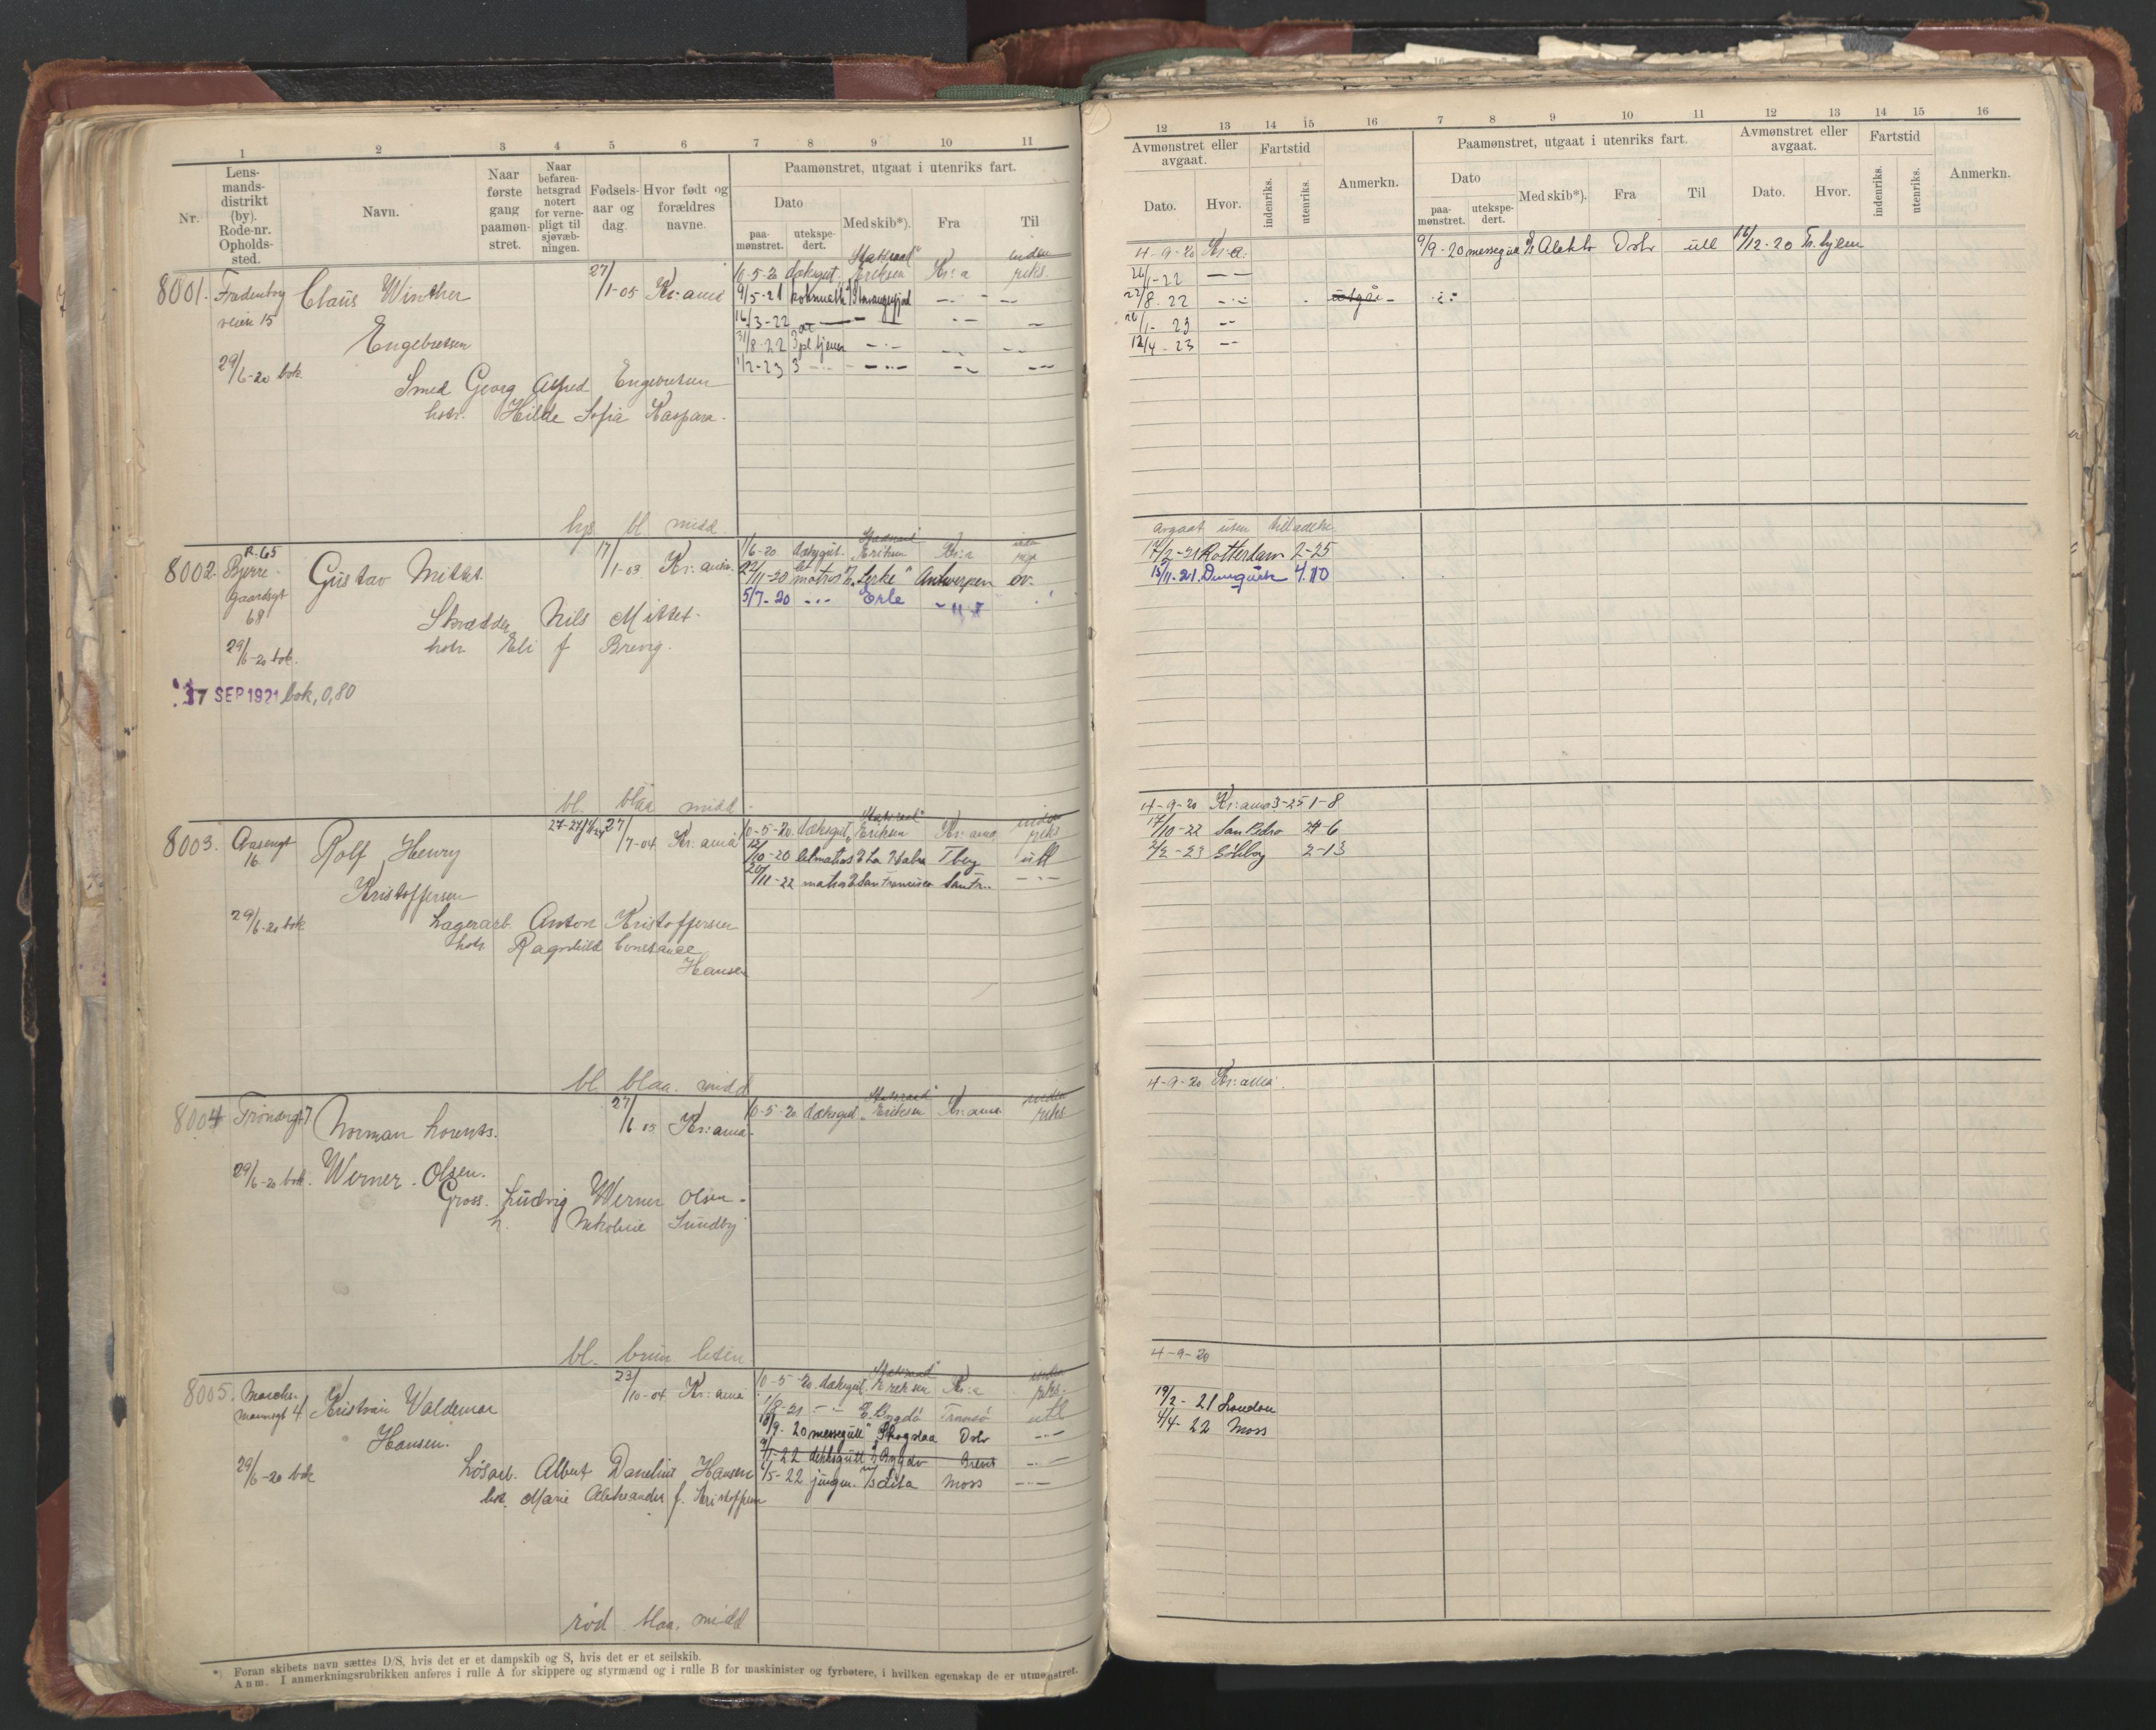 1 2 3 4 5 6 7 8 9 10 11
Nr.
Lens-
mands-
distrikt
(by).
Rode-nr.
Opholds-
sted.
Navn.
Naar
første
gang
paamøn-
stret.
Naar
befaren-
hetsgrad
notert
for verne-
pligt til
sjøvæb-
ningen.
Fødsels-
aar og
dag.
Hvor født og
forældres
navne.
Paamønstret, utgaat i utenriks fart.
Dato
paa-
mønstret.
utekspe-
dert.
Med skib*).
Fra
Til
8001.
veien 15
29/6-20 bok
Claus Winther
Engebretsen
Smed Georg Alfred Engebretsen
hstr. Hilde Sofia Kaspara.
27/1-05 Kr:ania
10-5-20 dæksgut. "Statsraad Eriksen" Kr:a inden riks.
9/5-21 Stavangerfjord
16/3-22
31/8-22 3
1/2-23 3
lys bl. midd.
8002.
R. 65
Bjerre-
gaardsgt
68
29/6-20 bok.
17 SEP 1921 bok, 0,80
Gustav Mittet.
Skrædder Nils Mittet.
hstr. Eli f. Brevig.
17/1-03 Kr:ania.
1/6-20 dæksgut. "Statsraad Eriksen" Kr:a
22/11-20 let matros "Lerke" Antwerpen ov.
5/7-20 Erle
bl. blaa midd.
8003.
Aasengt
16
29/6-20 bok
Rolf Henry
Kristoffersen
Lagerarb. Anton Kristoffersen
hstr. Ragnhild Constance
Hansen
27/7-04 Kr:ania
10-5-20. dæksgut. "Statsraad Eriksen" Kr:ania inden riks
12/10-20 letmatros La Habra Tbg utl
20/11-22 matros San Francisco
bl. blaa. midd
8004
29/6-20 bok.
Norman Lorents.
Werner-Olsen.
Gross. Ludvig Werner Olsen.
h. Nikoline Sundby
27/6 05 Kr:ania.
10-5-20 dæksgut. "Statsraad Eriksen" Kr:ania inden riks
bl. brun liten
8005.
29/6-20 bok
Kristian Valdemar
Hansen.
Løsarb. Albert Danelius Hansen
hst. Marie Aleksandra f. Kristoffersen
23/10-04 Kr:ania
10-5-20. dæksgut. "Statsraad Eriksen" Kr:a inden riks.
1/8-21 Bygdø Tromsø utl
18/9-20 messegutt Skogstaa Oslo
9/1-22 dæksgutt Bygdø
2/5-22 jungm. Lisa Moss
rød blaa. midd
*) Foran skibets navn sættes D/S, hvis det er et dampskib og S, hvis det er et seilskib.
Anm. I anmerkningsrubrikken anføres i rulle A for skippere og styrmænd og i rulle B for maskinister og fyrbøtere, i hvilken egenskap de er utmønstret.
12 13 14 15 16 7 8 9 10 11 12 13 14 15 16
Avmønstret eller
avgaat.
Dato. Hvor.
Fartstid
indenriks. utenriks.
Anmerkn.
Paamønstret, utgaat i utenriks fart.
Dato
paa-
mønstret.
utekspe-
dert.
Med skib*).
Fra
Til
Avmønstret eller
avgaat.
Dato. Hvor.
Fartstid
indenriks. utenriks.
Anmerkn.
4-9-20 Kr:a.
26/1-22
22/8-22 utgår
26/1-23
12/4-23
9/9-20 messegutt Oslo utl
Avgaat uten tilladelse.
17/2-21 Rotterdam 2-25
15/11-21 Dunquerk 4.10
4-9-20 Kr:ania 3-25 1-8
17/10-22 San Pedro 24-6
2/2-23 Gøtbg 2-13
4-9-20 Kr:ania.
4-9-20
19/2-21 London
4/4-22 Moss